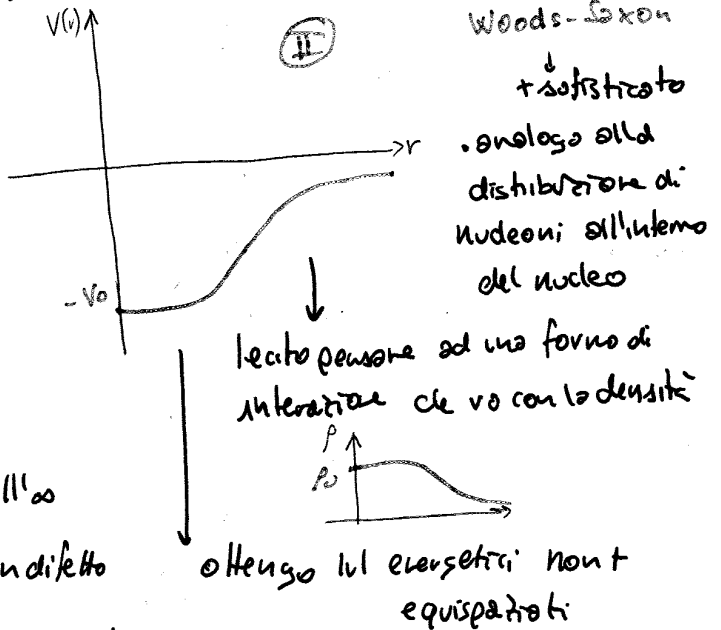 V(r)
II
Woods-Saxon
+ sofisticato
r
. analogo alla
distribuzione di
nucleoni all'interno
del nucleo
-V0
lecito pensare ad una forma di
interazione che va con la densità
ρ
ρ0
ll'∞
n difetto
ottengo lvl energetici non +
equispaziati